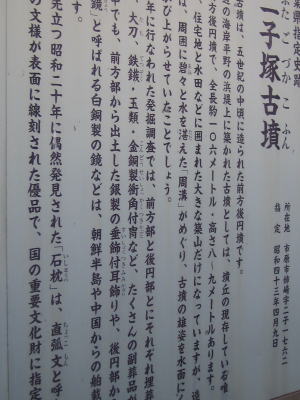 県指定史跡
ふたごづかこふん
二子塚古墳
所在地 市原市姉崎字二子一七六二
指定 昭和四十三年四月九日
古墳は、五世紀の中頃に造られた前方後円墳です。
の海岸平野の浜堤上に築かれた古墳としては、墳丘の現存している唯
方後円墳で、全長約一〇六メートル・高さ八〜九メートルあります。
、住宅地と水田などに囲まれた大きな築山だけになっていますが、造
は、周囲に碧々と水を湛えた「周溝」がめぐり、古墳の雄姿を水面に
び上がらせていたことでしょう。
年に行なわれた発掘調査では、前方部と後円部とにそれぞれ埋葬
、大刀、鉄鏃・玉類・金銅製衝角付冑など、たくさんの副葬品が
中でも、前方部から出土した銀製の垂飾付耳飾りや、後円部か
鏡」と呼ばれる白銅製の鏡などは、朝鮮半島や中国からの舶載
す。
先立つ昭和二十年に偶然発見された「石枕」は、直弧文と呼
の文様が表面に線刻された優品で、国の重要文化財に指定